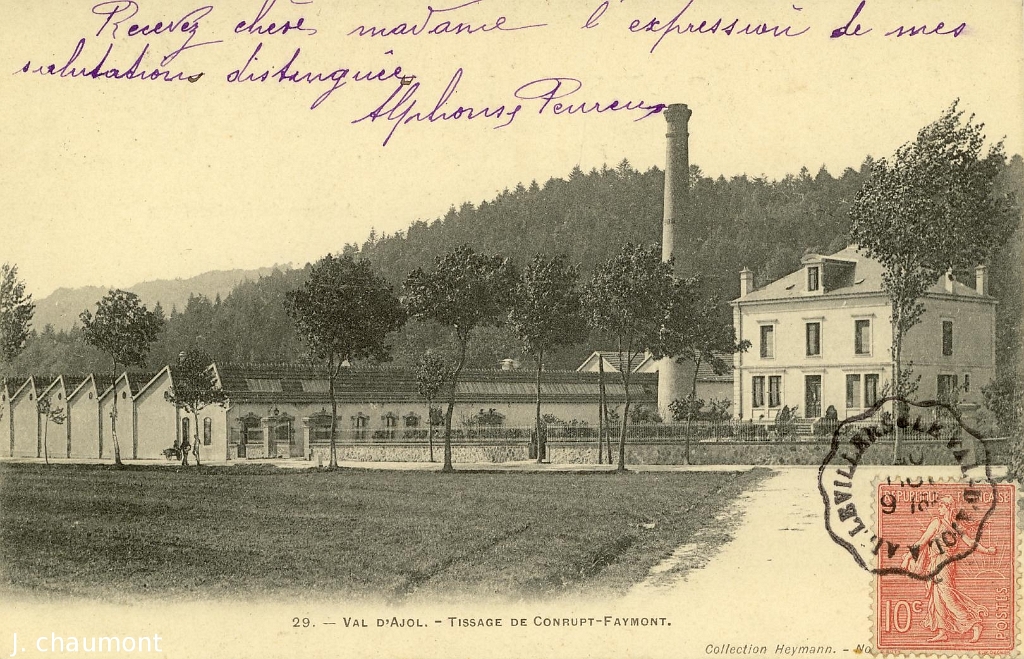 Recevez chère madame l'expression de mes
salutations distinguée
Alphonse Peureux
29. — VAL D'AJOL. - TISSAGE DE CONRUPT-FAYMONT.
Collection Heymann. - No
J. chaumont
AILLEVILLERS LE VAL-D'AJOL
RÉPUBLIQUE FRANÇAISE
10c
POSTES